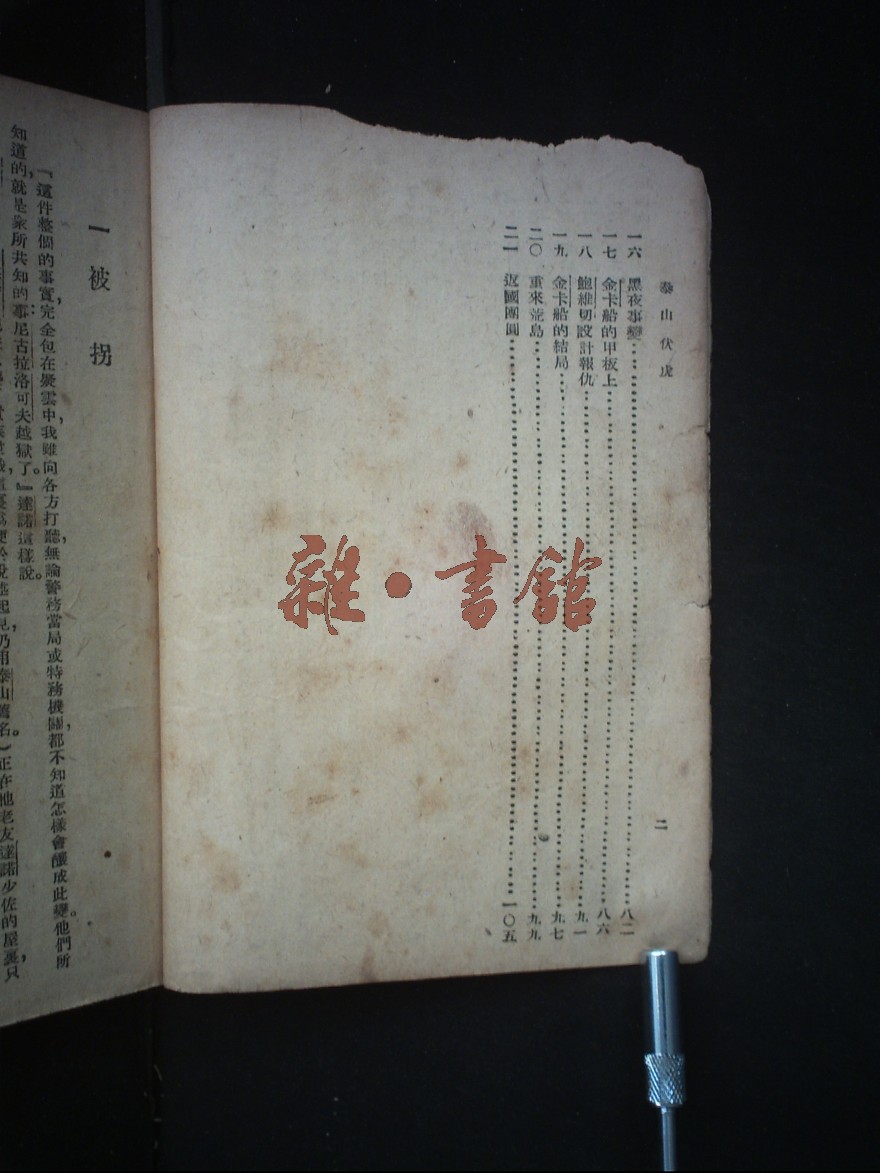 泰山伏虎
二
一六 黑夜事變 八二
一七 金卡船的甲板上 八六
一八 鮑維切設計報仇 九一
一九 金卡船的結局 九七
二〇 重來荒島 九九
二一 返國團圓 一〇五
雜·書館
一 被拐
「這件整個的事實,完全包在疑雲中,我雖向各方打聽,無論警務當局或特務機關,都不知道怎樣會釀成此變。他們所
知道的,就是衆所共知的事:尼古拉洛可夫越獄了。』達諾這樣說。
便於說述起見,乃用泰山舊名。)正在他老友達諾少佐的屋裏,只